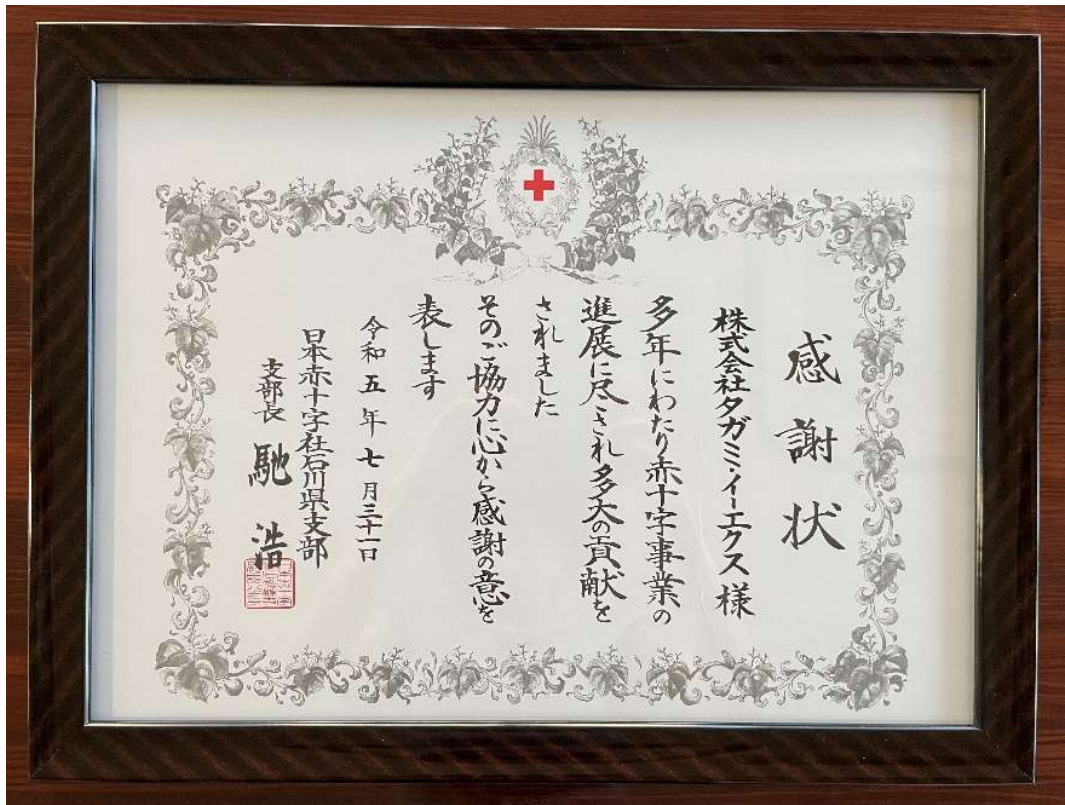 感謝状
株式会社タガミ・イーエクス様
多年にわたり赤十字事業の
進展に尽され多大の貢献を
されました
そのご協力に心から感謝の意を
表します
令和五年七月三十一日
日本赤十字社石川県支部
支部長 馳浩